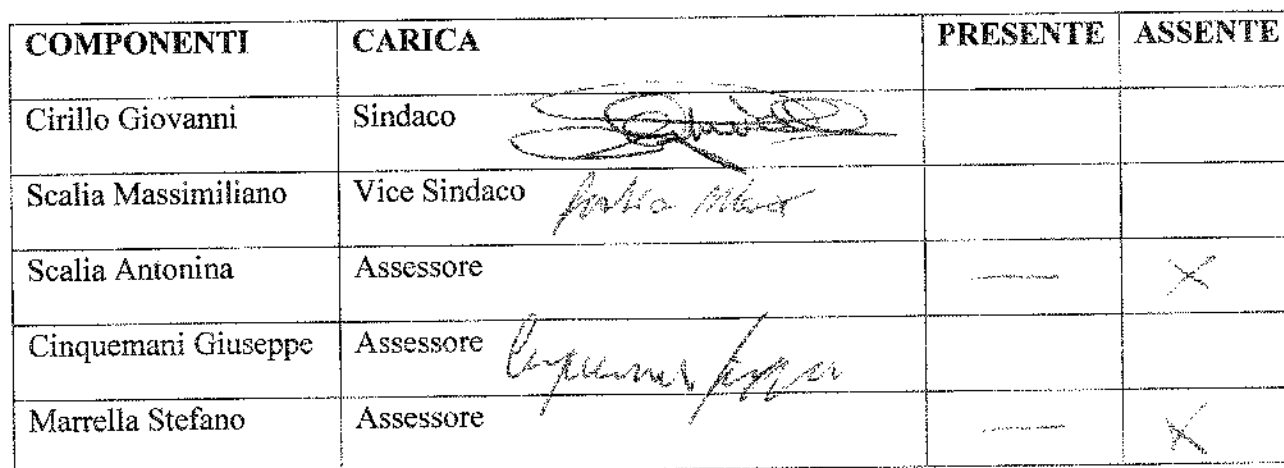 COMPONENTI CARICA PRESENTE ASSENTE
Cirillo Giovanni Sindaco
Scalia Massimiliano Vice Sindaco
Scalia Antonina Assessore — X
Cinquemani Giuseppe Assessore
Marrella Stefano Assessore — X